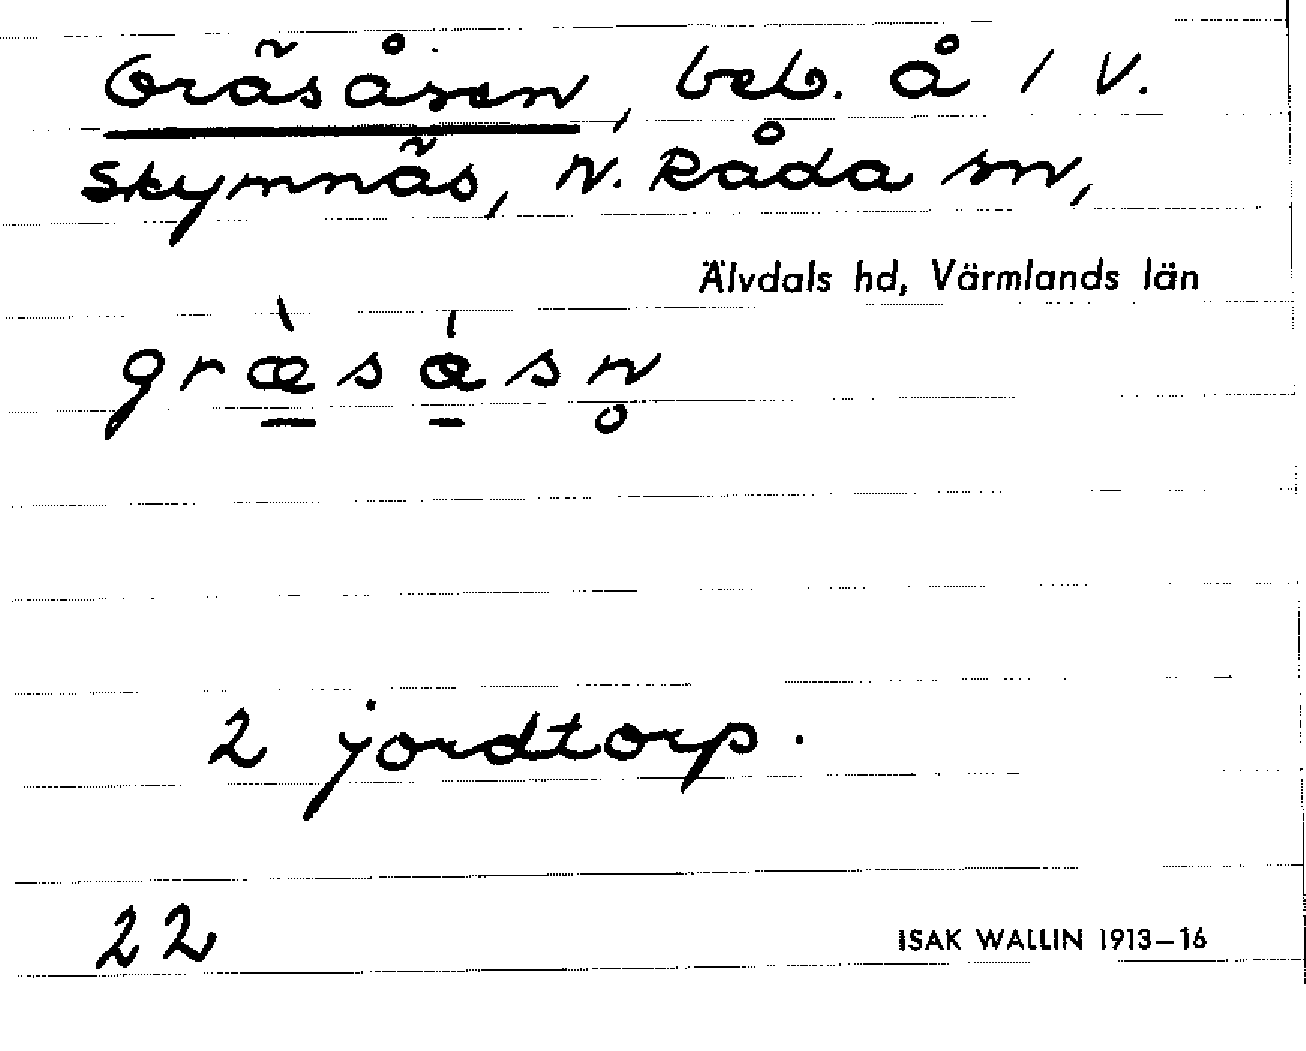 Gräsåsen, beb. å 1 V.
Skymnäs, N. Råda sn,
Älvdals hd, Värmlands län
græ̀sásn̥
2 jordtorp.
22
ISAK WALLIN 1913–16